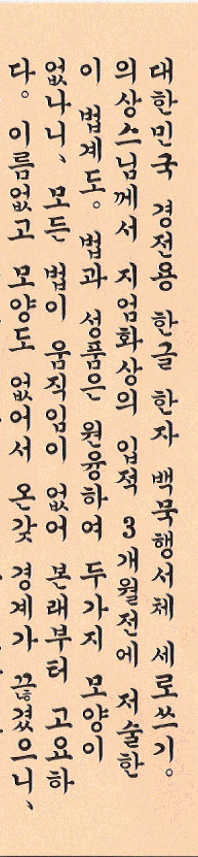 대한민국 경전용 한글 한자 백묵행서체 세로쓰기。
의상스님께서 지엄화상의 입적 3개월전에 저술한
이 법계도。 법과 성품은 원융하여 두가지 모양이
없나니、 모든 법이 움직임이 없어 본래부터 고요하
다。 이름없고 모양도 없어서 온갖 경계가 끊겼으니、